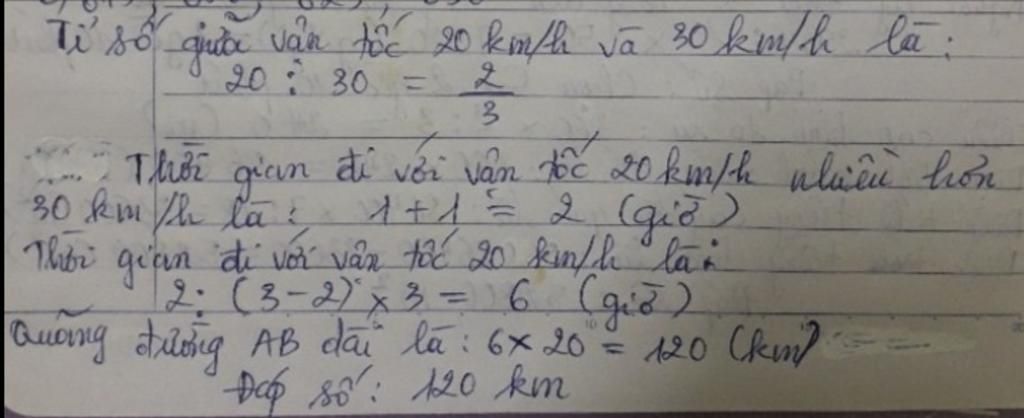 Tỉ số giữa vận tốc 20 km/h và 30 km/h là:
20 : 30 = 2/3
Thời gian đi với vận tốc 20 km/h nhiều hơn
30 km/h là: 1 + 1 = 2 (giờ)
Thời gian đi với vận tốc 20 km/h là:
2 : (3 - 2) x 3 = 6 (giờ)
Quãng đường AB dài là: 6 x 20 = 120 (km)
Đáp số: 120 km